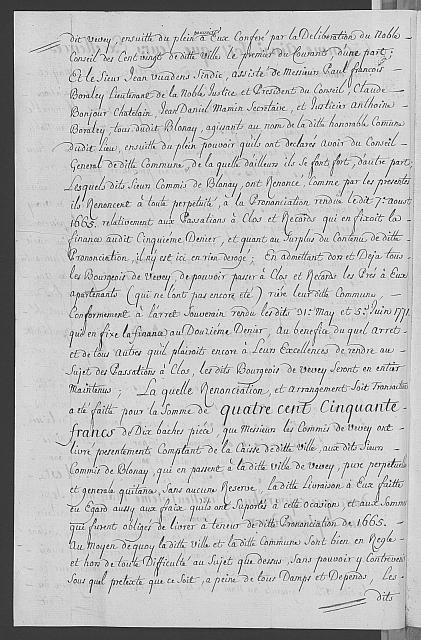 dit Vevey, ensuitte du plein pouvoir à Eux Conferé par la Deliberation du Noble
Conseil des Cent vingts de ditte ville le premier du Courant, d'une part;
Et le Sieur Jean Vuadens Sindic, assisté de Messieurs Paul François
Boraley Lieutenant de la Noble Justice et President du Conseil, Claude
Bonjour Chatelain, Jean Daniel Mamin Secretaire, et Justicier Anthoine
Boraley, tous dudit Blonay, agissants au nom de la ditte honorable Comune
dudit Lieu, ensuitte du plein pouvoir qu'ils ont declarés avoir du Conseil
General de ditte Commune, de la quelle d'ailleurs ils se font fort, d'autre part,
Lesquels dits Sieurs Commis de Blonay, ont Renoncé, Comme par les presentes
ils Renoncent à toute perpetuité, à la Prononciation rendüe ledit 7e. aoust
1665. relativement aux Passations à Clos et Records qui en fixoit la
finance audit Cinquiéme Denier, et quant au Surplus du Contenu de ditte
Prononciation, il n'y est ici en rien derogé; En admettant dors et Deja tous
les Bourgeois de Vevey, de pouvoir passer à Clos et Records les Prés à Eux
apartenants (qui ne l'ont pas encore eté) riére leur ditte Commune,
Conformement à l'arret Souverain rendu les dits 21e. May et 5e. Juin 1771.
qui en fixe la finance au Douziéme Denier, au benefice du quel arret
et de tous autres qu'il plairoit encore à Leurs Excellences de rendre au
Sujet des Passations à Clos, les dits Bourgeois de Vevey seront en entier
Maintenus; La quelle Renonciation, et arrangement soit Transaction
a eté faitte pour la Somme de quatre cent Cinquante
francs de Dix baches piéce, que Messieurs les Commis de Vevey ont
livré presentement Comptant de la Caisse de ditte Ville, aux dits Sieurs
Commis de Blonay, qui en passent à la ditte ville de Vevey, pure perpetuelle
et generale quitance, Sans aucune Reserve, la ditte Livraison à Eux faitte
eu Egard aussy aux fraix quils ont Suportés à cette ocasion, et aux Sommes
que furent obligés de livrer à teneur de ditte Prononciation de 1665.
Au Moyen de quoy la ditte ville et la ditte Commune sont bien en Regle
et hors de toute Difficulté au Sujet que dessus, Sans pouvoir y Contrevenir
Sous quel pretexte que ce Soit, a peine de tous Damps et Depends, Les
dits